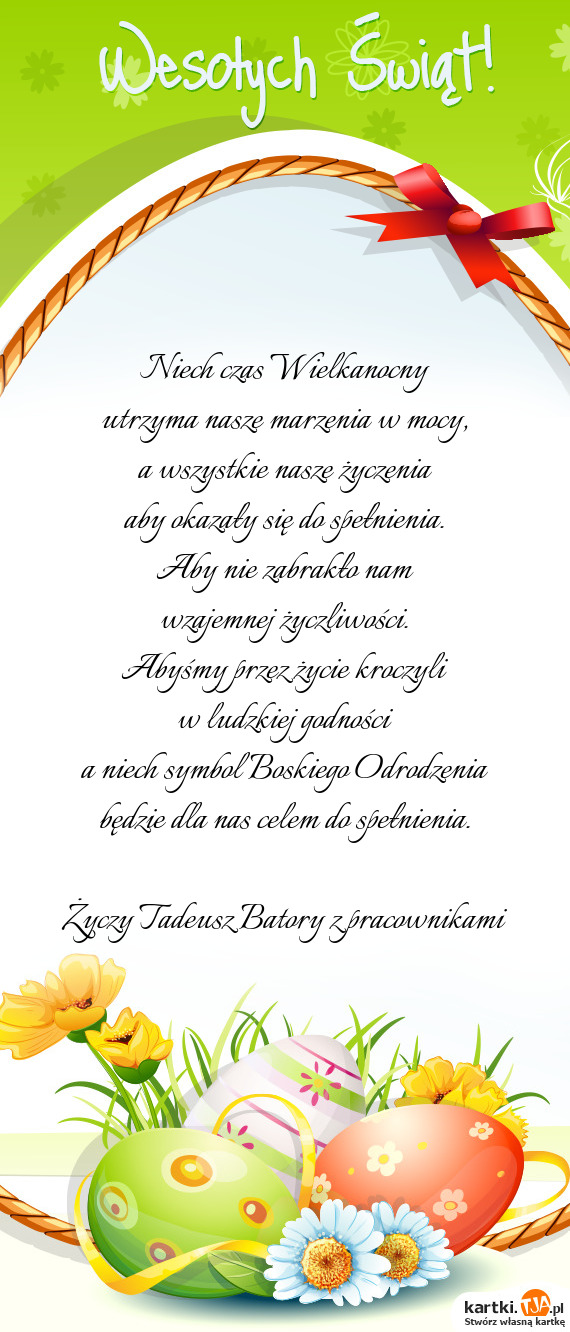 Wesołych Świąt!
Niech czas Wielkanocny
utrzyma naszę marzenia w mocy,
a wszystkie naszę życzenia
aby okazały się do spełnienia.
Aby nie zabrakło nam
wzajemnej życzliwości.
Abyśmy przez życie kroczyli
w ludzkiej godności
a niech symbol Boskiego Odrodzenia
będzie dla nas celem do spełnienia.
Życzy Tadeusz Batory z pracownikami
kartki.TJA.pl
Stwórz własną kartkę